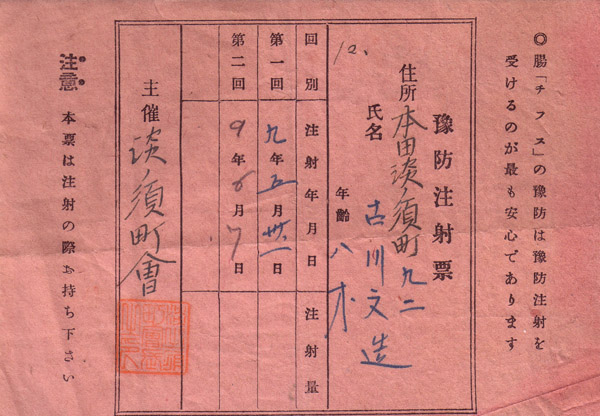 ◎腸「チフス」の豫防は豫防注射を
受けるのが最も安心であります
豫防注射票
住所 本田淡須町九二
氏名 古川文造
年齢 八才
12、
回別 注射年月日 注射量
第一回 九年五月卅一日
第二回 9年6月7日
主催 淡須町會
注意 本票は注射の際お持ち下さい